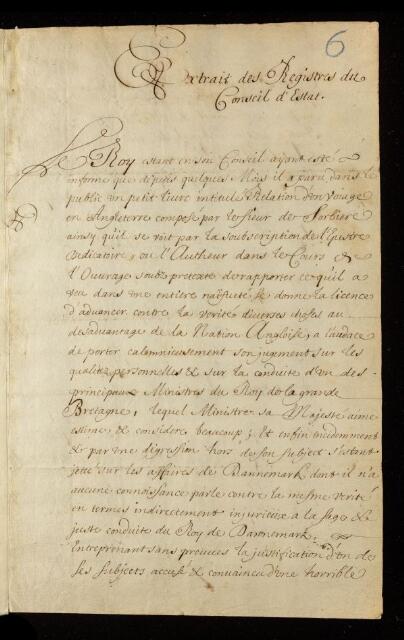 6
Extrait des Registres du
Conseil d'Estat.
Le Roy estant en son Conseil ayant esté
informé que depuis quelques Mois il a paru dans le
public un petit livre intitulé Relation d'un Voiage
en Angleterre composé par le sieur de Sorbiere
ainsy qu'il se voit par la soubscription de l'Epistre
dedicatoire, ou l'Autheur dans le Cours de
l'Ouvrage soubz pretexte de rapporter ce qu'il a
veu dans une entiere naïfueté se donne la licence
d'advancer contre la verité diverses choses au
desadvantage de la Nation Angloise, a l'audace
de porter calomnieusement son jugment sur les
qualitez personnelles & sur la conduite d'un des
principaux Ministres du Roy de la grande
Bretagne, lequel Ministre sa Majesté aime
estime & considere beaucoup; Et enfin incidemment
& par une digression hors de son subject s'estant
jetté sur les affaires de Dannemark dont il n'a
aucune connoissance parle contre la mesme verité
en termes indirectement injurieux a la sage &
juste conduite du Roy de Dannemark,
Entreprenant sans preuves la justification d'un de
ses subjects accusé & convaincu d'une horrible